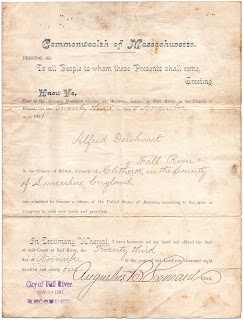 Commonwealth of Massachusetts.
BRISTOL SS.
To all People to whom these Presents shall come,
Greeting.
Know Ye,
That at the Second District Court of Bristol, holden at Fall River in the County of
Bristol, on Twenty third day November
A.D. 1891
Alfred Dewhurst
of Fall River
in the County of Bristol, formerly of Clitheroe, in the County
of Lancashire, England,
was admitted to become a citizen of the United States of America, according to the Acts of
Congress in such case made and provided.
In Testimony Whereof, I have hereunto set my hand and affixed the seal of
said Court at Fall River, the Twenty third
day of November in the year one thousand eight
hundred and ninety one
Augustus B. Leonard Clerk
City of Fall River.
NOV 1891